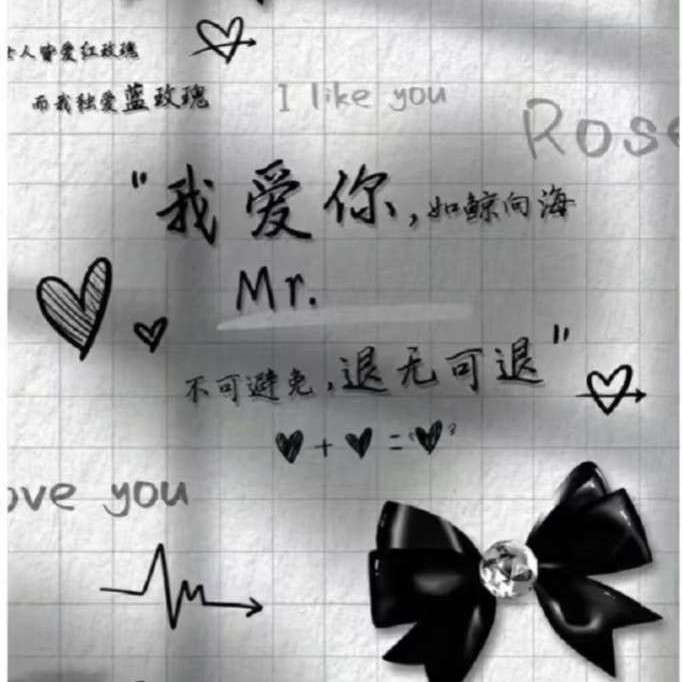 人皆爱红玫瑰
而我独爱蓝玫瑰
I like you
Rose
"我爱你,如鲸向海
Mr.
不可避免,退无可退"
+ =
ove you